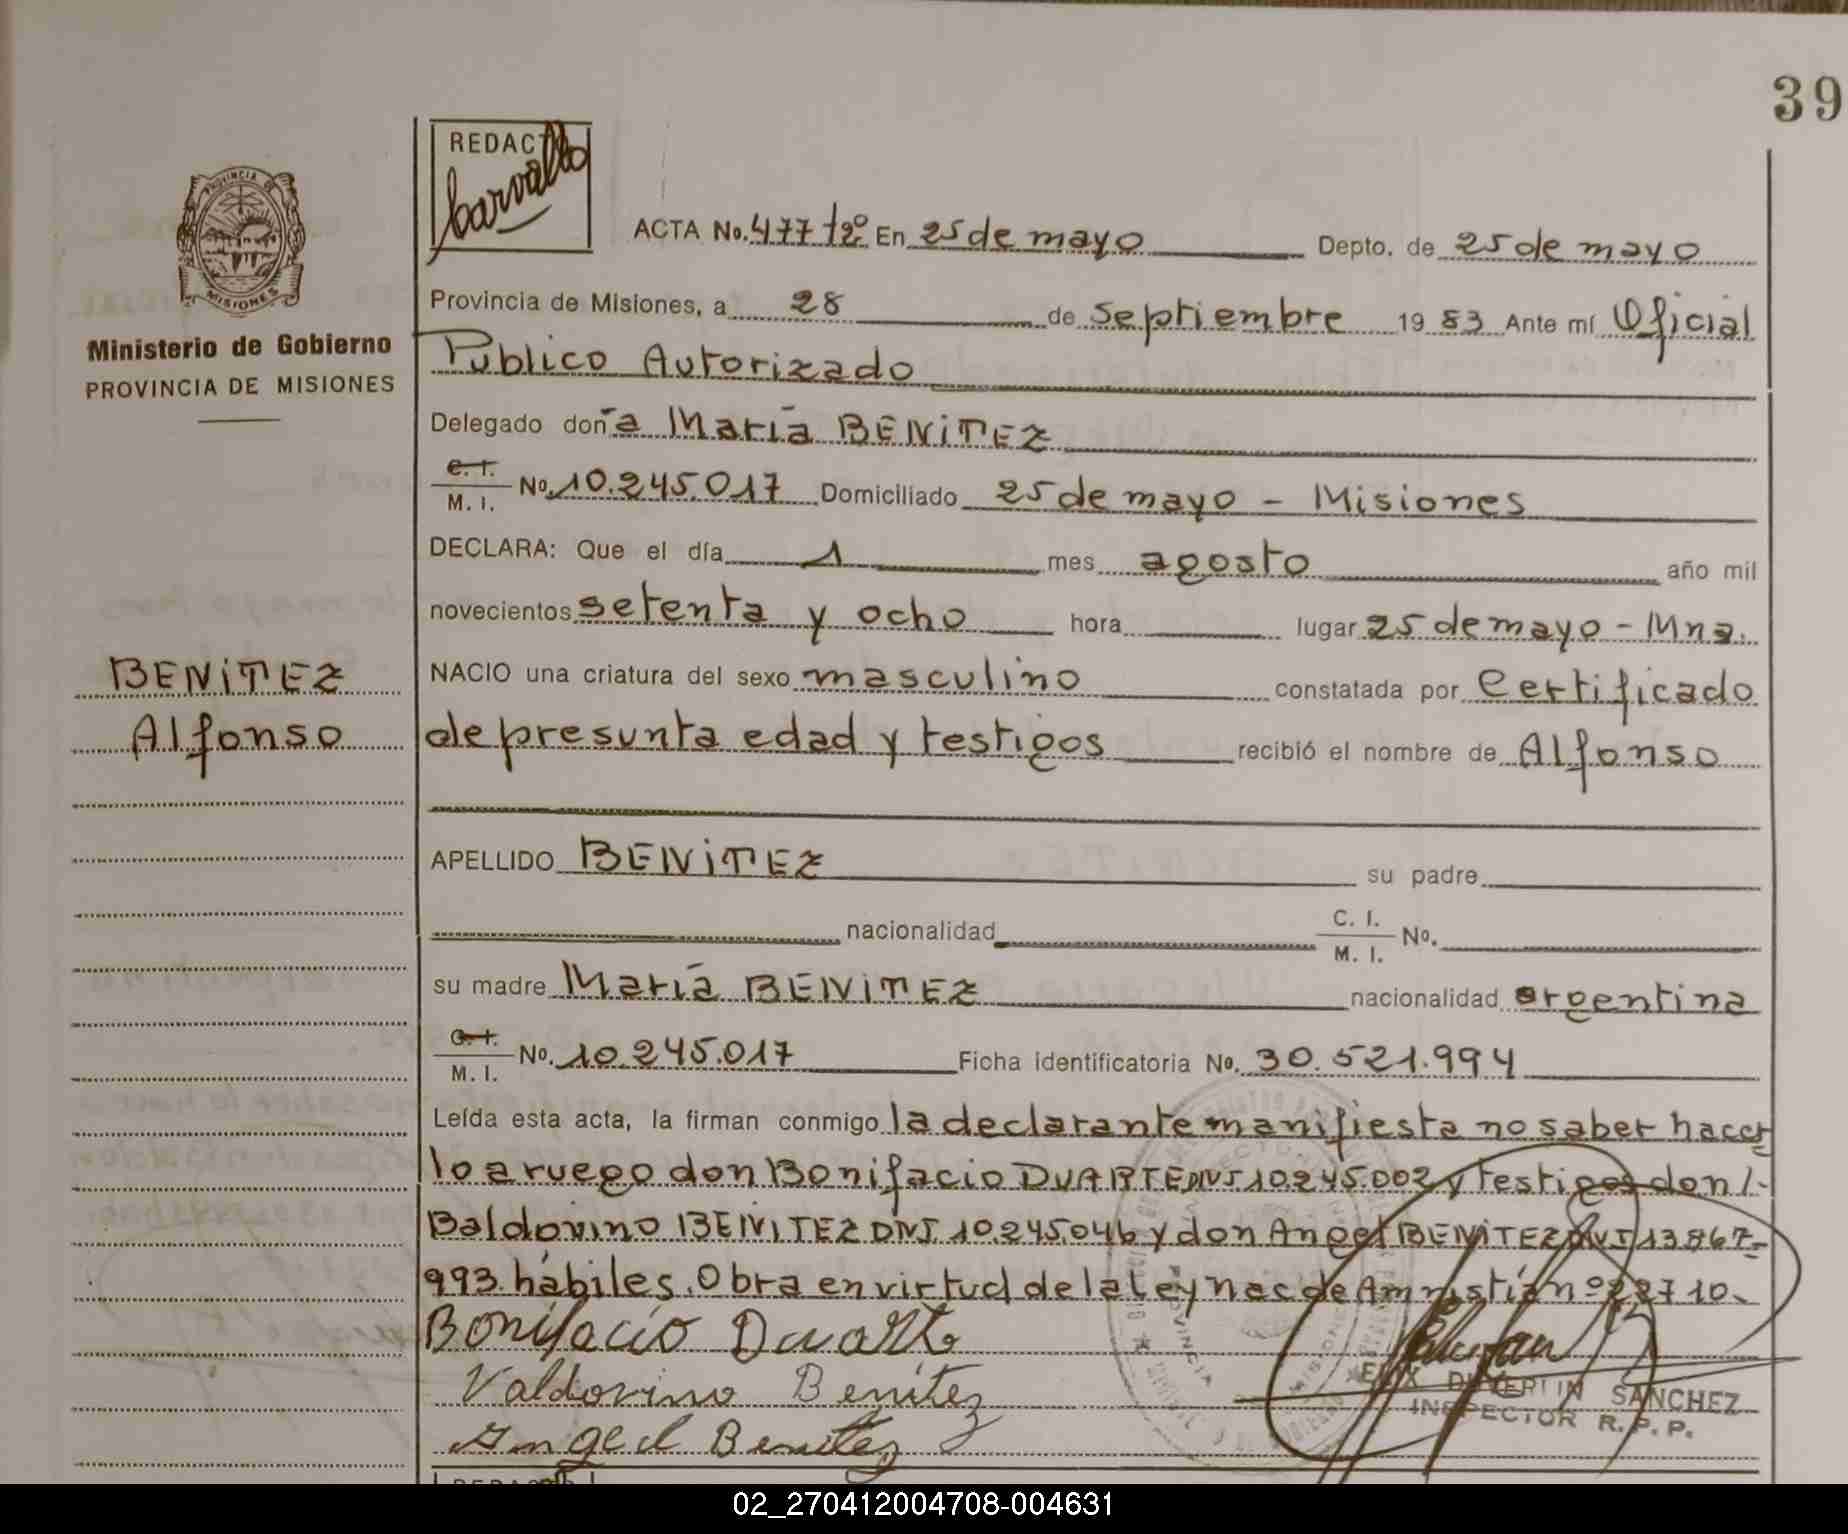 39
REDACTO
Carvallo
ACTA No. 477 tº2º En 25 de mayo Depto. de 25 de mayo
Provincia de Misiones, a 28 de Septiembre 1983 Ante mí Oficial
Público Autorizado
PROVINCIA DE
MISIONES
Ministerio de Gobierno
PROVINCIA DE MISIONES
Delegado doña María BENiTEZ
C. I.
M. I. No. 10.245.017 Domiciliado 25 de mayo - Misiones
DECLARA: Que el día 1 mes agosto año mil
novecientos setenta y ocho hora lugar 25 de mayo - Mns.
BENiTEZ
Alfonso
NACIO una criatura del sexo masculino constatada por Certificado
de presunta edad y testigos recibió el nombre de Alfonso
APELLIDO BENiTEZ su padre
nacionalidad C. I.
M. I. No.
su madre María BENiTEZ nacionalidad argentina
C. I.
M. I. No. 10.245.017 Ficha identificatoria No. 30.521.994
Leída esta acta, la firman conmigo la declarante manifiesta no saber hacer
lo a ruego don Bonifacio DUARTE DNI 10.245.002 y testigos don /-
Baldovino BENITEZ DNI 10.245.046 y don Angel BENITEZ DNI 13867-
993. hábiles. Obra en virtud de la ley nac de Amnistía nº 22710.
Bonifacio Duarte
Valdovino Benítez
Angel Benitez
SANCHEZ
INSPECTOR R. P. P.
02_270412004708-004631